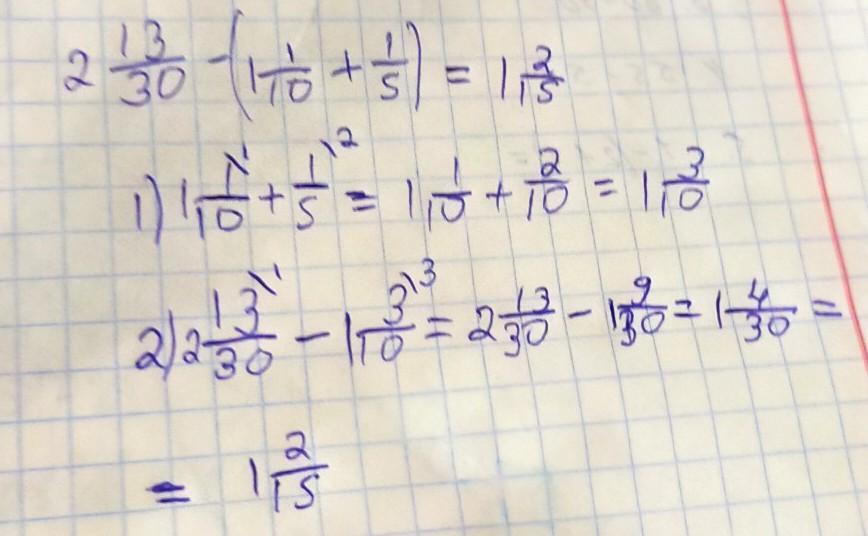 2 13/30 - (1 1/10 + 1/5) = 1 2/15
1) 1 1\1/10 + 1\2/5 = 1 1/10 + 2/10 = 1 3/10
2) 2 13\1/30 - 1 3\3/10 = 2 13/30 - 1 9/30 = 1 4/30 =
= 1 2/15